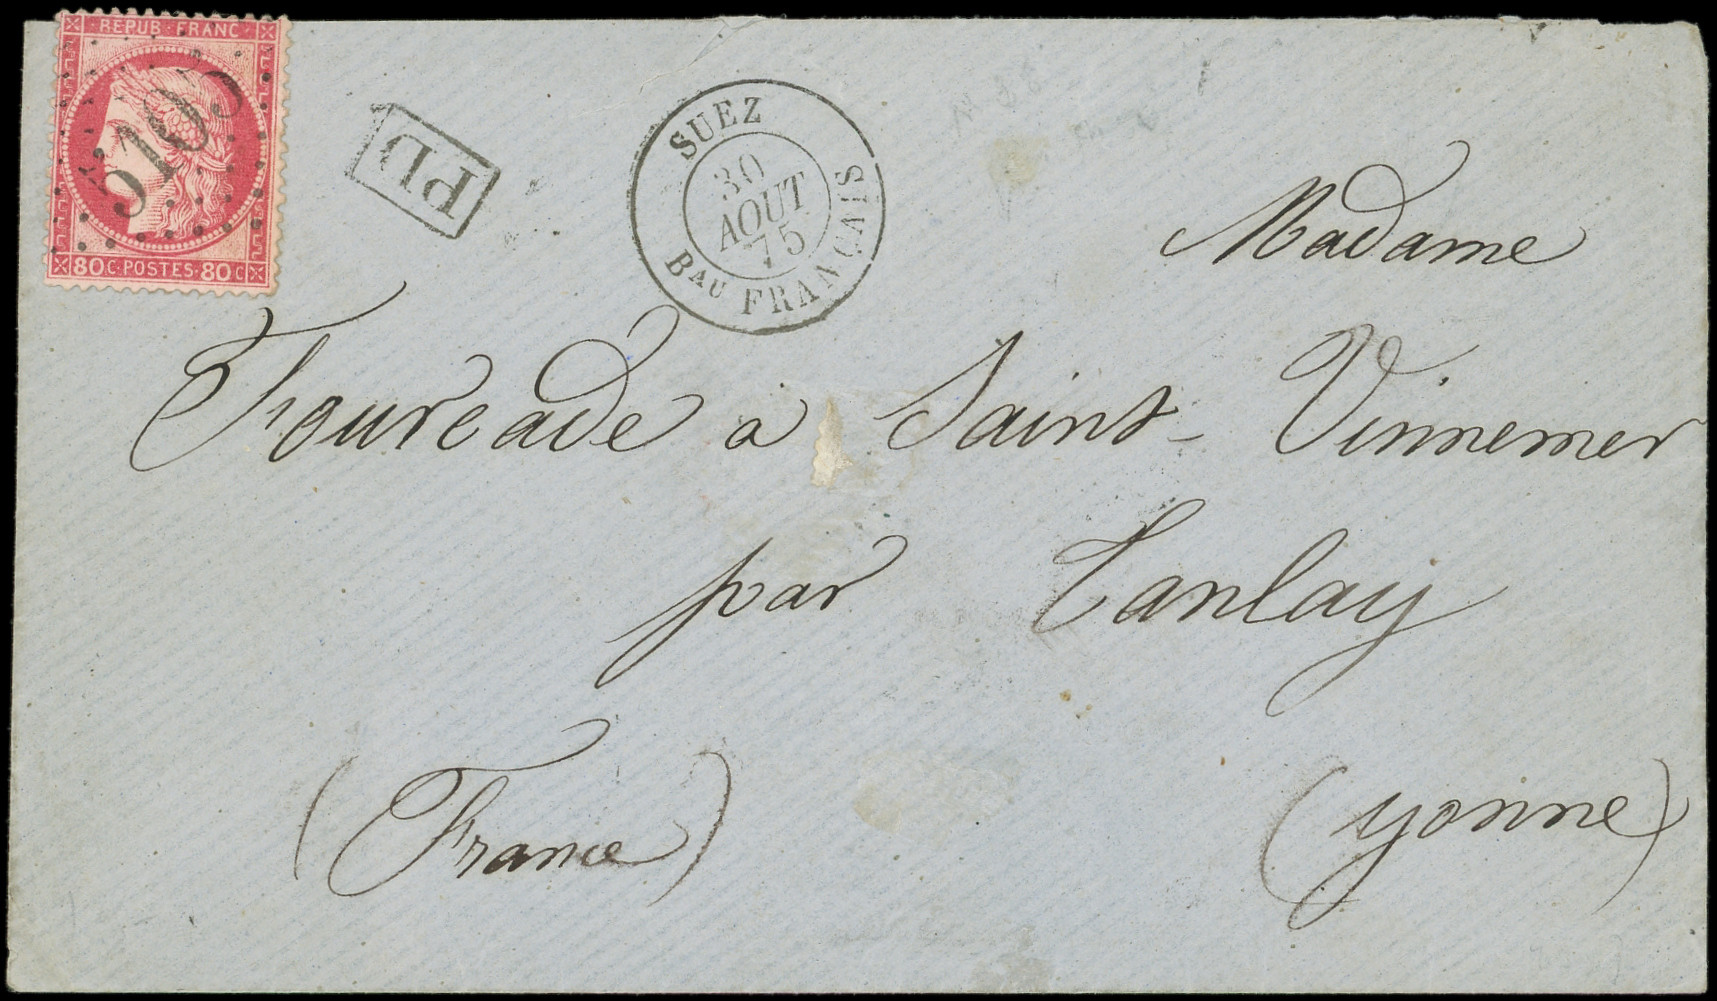 REPUB·FRANC·
5105
80C·POSTES·80C
PD
SUEZ
30
AOUT
75
Bau FRANÇAIS
Madame
Fourcade à Saint-Vinnemer
par Tanlay
(France) (Yonne)